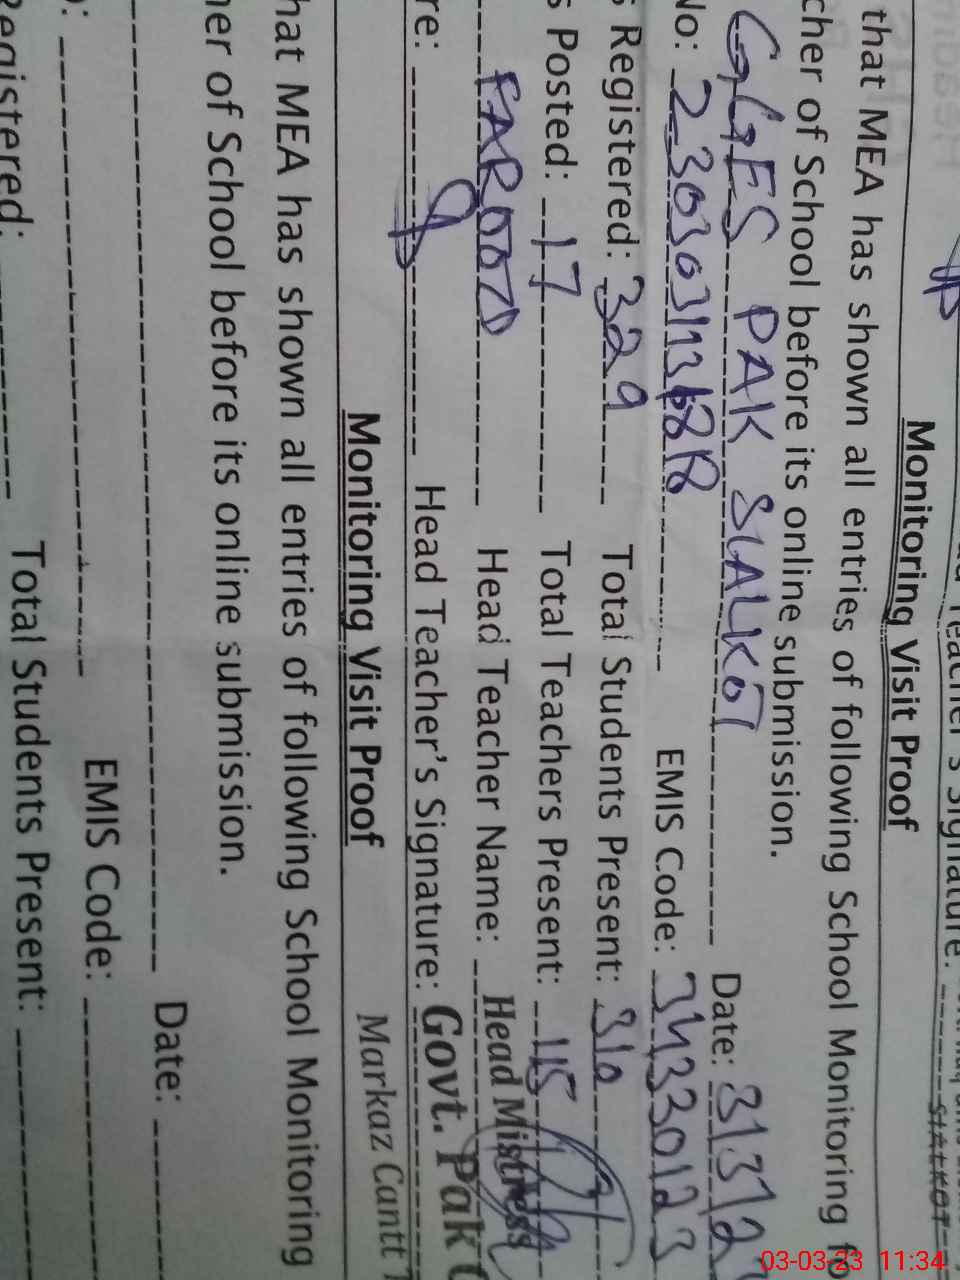 Teacher's Signature:
SIALKOT
Monitoring Visit Proof
that MEA has shown all entries of following School Monitoring
cher of School before its online submission.
GGES PAK SIALKOT Date: 3/3/2
No: EMIS Code: 34330123
s Registered: 329 Total Students Present: 310
s Posted: 17 Total Teachers Present: 15
FAROOD Head Teacher Name: Head Mistress
re: Head Teacher's Signature: Govt. Pak G
Monitoring Visit Proof Markaz Cantt
hat MEA has shown all entries of following School Monitoring
her of School before its online submission.
Date:
): EMIS Code:
Registered: Total Students Present:
03-03-23 11:34